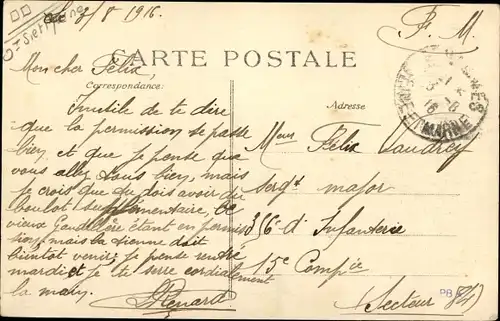 3/8 1916.
F. M.
CARTE POSTALE
Mon cher Félix,
Correspondance:
Adresse
Inutile de te dire
que la permission se passe
bien et que je pense que
vous allez tous bien, mais
je crois que tu dois avoir du
boulot supplémentaire, ce
vieux étant en permis
sion, mais la tienne doit
bientôt venir; je pense rentrer
mardi et je te serre cordialement
la main.
Renard
Mons Félix
Sergt major
356e d'Infanterie
15e Compie
Secteur
MARNE
PB